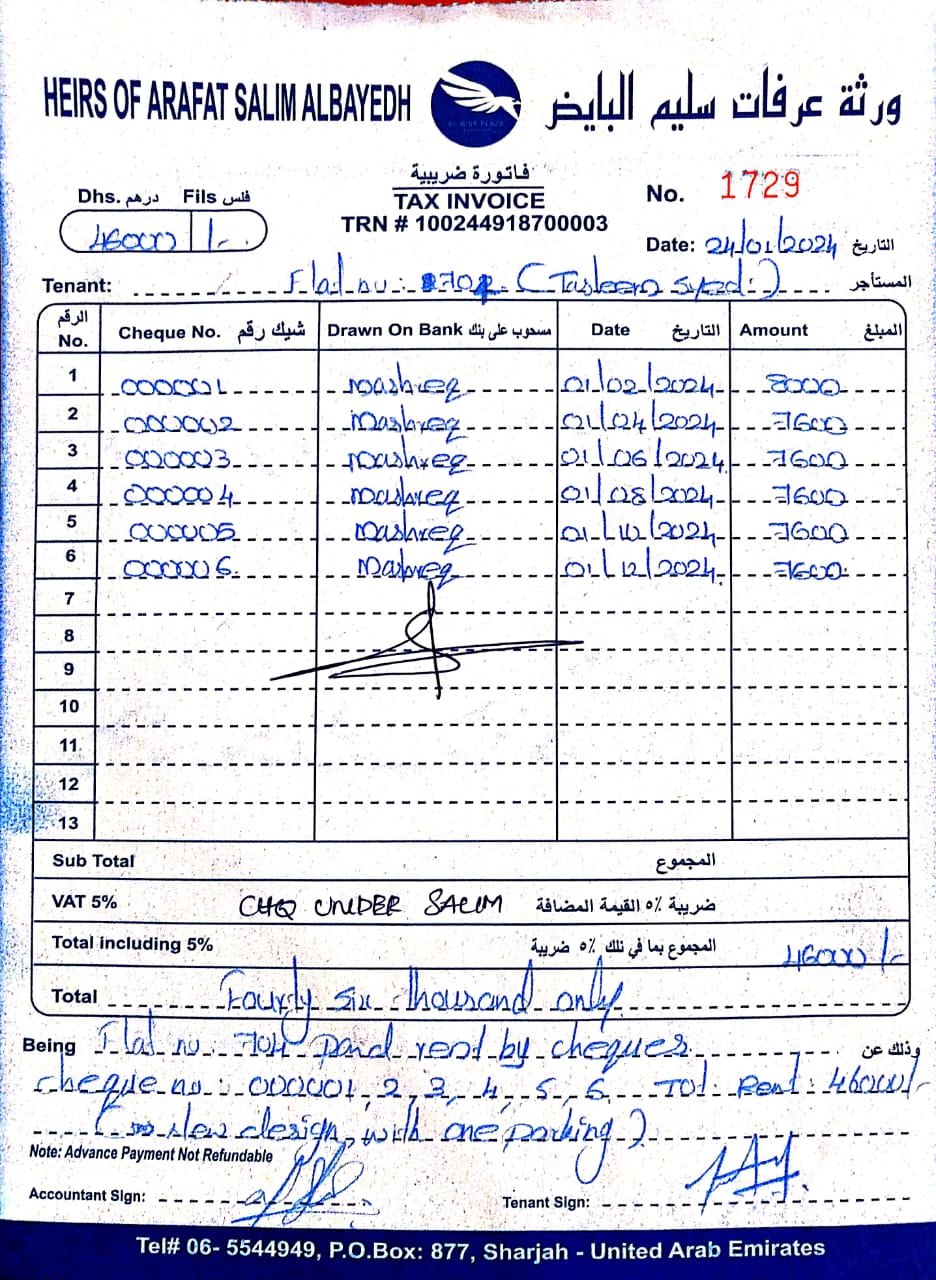 HEIRS OF ARAFAT SALIM ALBAYEDH
ورثة عرفات سليم البايض
فاتورة ضريبية
TAX INVOICE
TRN # 100244918700003
Dhs. درهم Fils فلس
46000 /-
No. 1729
Date: 24/01/2024 التاريخ
Tenant: Flat nu: 704 (Tasleem Syed) المستأجر
الرقم No. Cheque No. شيك رقم Drawn On Bank مسحوب على بنك Date التاريخ Amount المبلغ
1 000001 Mashreq 01/02/2024 8000
2 000002 Mashreq 01/04/2024 7600
3 000003 Mashreq 01/06/2024 7600
4 000004 Mashreq 01/08/2024 7600
5 000005 Mashreq 01/10/2024 7600
6 000006 Mashreq 01/12/2024 7600
7
8
9
10
11
12
13
Sub Total المجموع
VAT 5% CHQ UNDER SALIM ضريبة ٥٪ القيمة المضافة
Total including 5% المجموع بما في تلك ٥٪ ضريبة 46000/-
Total Fourty six thousand only
Being Flat nu: 704 paid rent by cheques وذلك عن
cheque no: 000001, 2, 3, 4, 5, 6 Tot: Rent: 46000/-
New design, with one parking )
Note: Advance Payment Not Refundable
Accountant Sign:
Tenant Sign:
Tel# 06- 5544949, P.O.Box: 877, Sharjah - United Arab Emirates